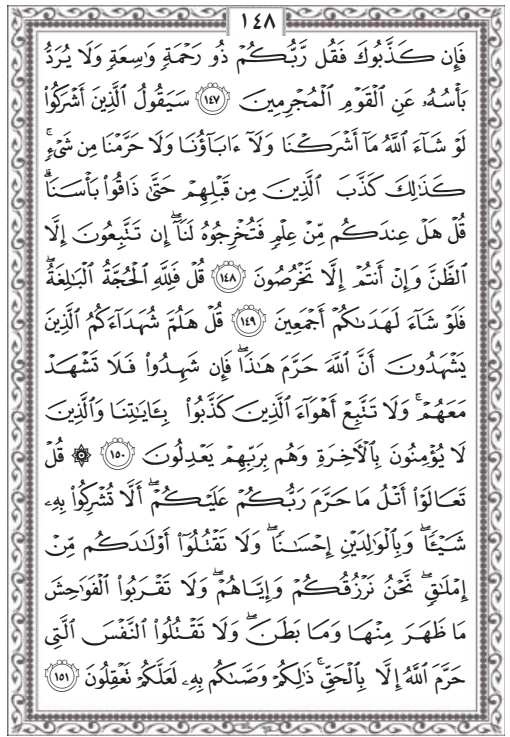 ١٤٨
فَإِن كَذَّبُوكَ فَقُل رَّبُّكُمْ ذُو رَحْمَةٍ وَٰسِعَةٍ وَلَا يُرَدُّ
بَأْسُهُۥ عَنِ ٱلْقَوْمِ ٱلْمُجْرِمِينَ ١٤٧ سَيَقُولُ ٱلَّذِينَ أَشْرَكُوا۟
لَوْ شَآءَ ٱللَّهُ مَآ أَشْرَكْنَا وَلَآ ءَابَآؤُنَا وَلَا حَرَّمْنَا مِن شَىْءٍۚ
كَذَٰلِكَ كَذَّبَ ٱلَّذِينَ مِن قَبْلِهِمْ حَتَّىٰ ذَاقُوا۟ بَأْسَنَاۗ
قُلْ هَلْ عِندَكُم مِّنْ عِلْمٍ فَتُخْرِجُوهُ لَنَآۖ إِن تَتَّبِعُونَ إِلَّا
ٱلظَّنَّ وَإِنْ أَنتُمْ إِلَّا تَخْرُصُونَ ١٤٨ قُلْ فَلِلَّهِ ٱلْحُجَّةُ ٱلْبَٰلِغَةُۖ
فَلَوْ شَآءَ لَهَدَىٰكُمْ أَجْمَعِينَ ١٤٩ قُلْ هَلُمَّ شُهَدَآءَكُمُ ٱلَّذِينَ
يَشْهَدُونَ أَنَّ ٱللَّهَ حَرَّمَ هَٰذَاۖ فَإِن شَهِدُوا۟ فَلَا تَشْهَدْ
مَعَهُمْۚ وَلَا تَتَّبِعْ أَهْوَآءَ ٱلَّذِينَ كَذَّبُوا۟ بِـَٔايَٰتِنَا وَٱلَّذِينَ
لَا يُؤْمِنُونَ بِٱلْءَاخِرَةِ وَهُم بِرَبِّهِمْ يَعْدِلُونَ ١٥٠ ۞ قُلْ
تَعَالَوْا۟ أَتْلُ مَا حَرَّمَ رَبُّكُمْ عَلَيْكُمْۖ أَلَّا تُشْرِكُوا۟ بِهِۦ
شَيْـًٔاۖ وَبِٱلْوَٰلِدَيْنِ إِحْسَٰنًاۖ وَلَا تَقْتُلُوٓا۟ أَوْلَٰدَكُم مِّنْ
إِمْلَٰقٍۖ نَّحْنُ نَرْزُقُكُمْ وَإِيَّاهُمْۖ وَلَا تَقْرَبُوا۟ ٱلْفَوَٰحِشَ
مَا ظَهَرَ مِنْهَا وَمَا بَطَنَۖ وَلَا تَقْتُلُوا۟ ٱلنَّفْسَ ٱلَّتِى
حَرَّمَ ٱللَّهُ إِلَّا بِٱلْحَقِّۚ ذَٰلِكُمْ وَصَّىٰكُم بِهِۦ لَعَلَّكُمْ تَعْقِلُونَ ١٥١